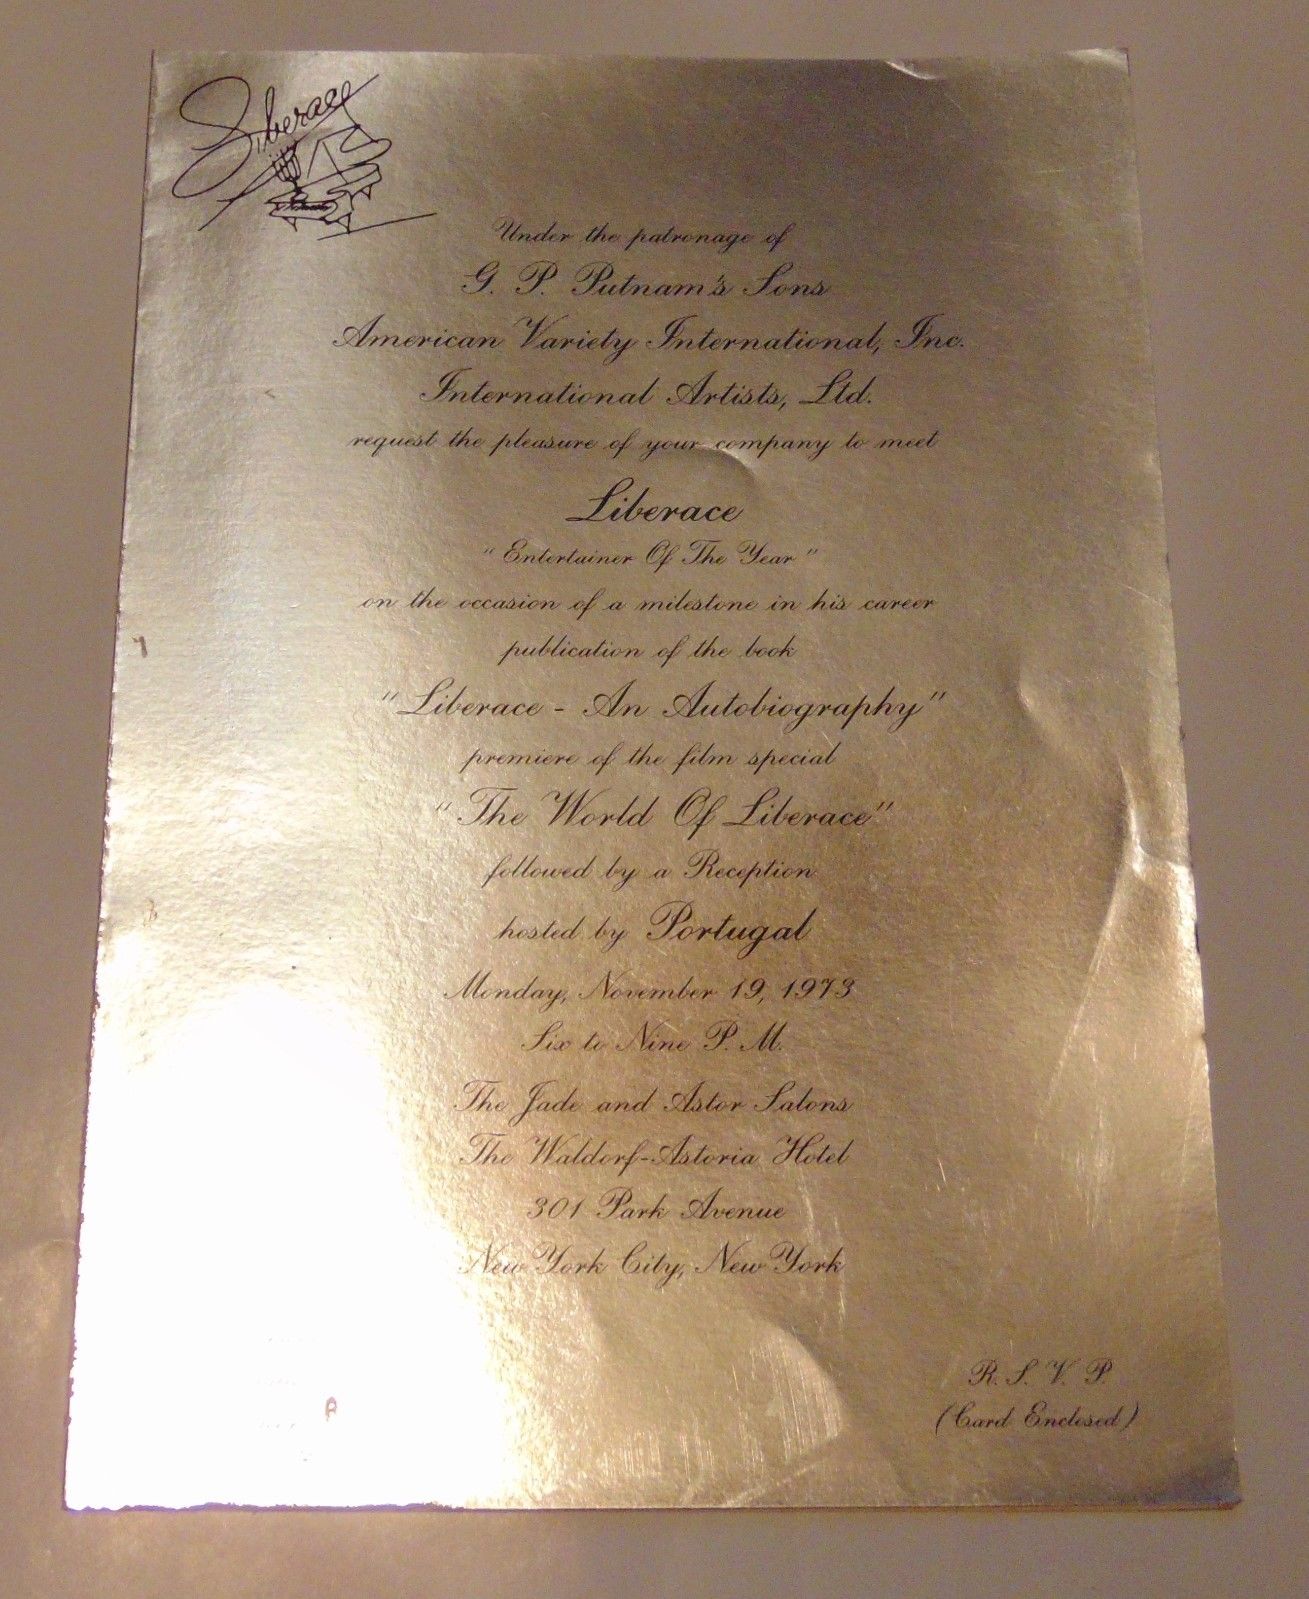 Liberace
Under the patronage of
G. P. Putnam's Sons
American Variety International, Inc.
International Artists, Ltd.
request the pleasure of your company to meet
Liberace
"Entertainer Of The Year"
on the occasion of a milestone in his career
publication of the book
"Liberace - An Autobiography"
premiere of the film special
"The World Of Liberace"
followed by a Reception
hosted by Portugal
Monday, November 19, 1973
Six to Nine P. M.
The Jade and Astor Salons
The Waldorf-Astoria Hotel
301 Park Avenue
New York City, New York
R. S. V. P.
(Card Enclosed)